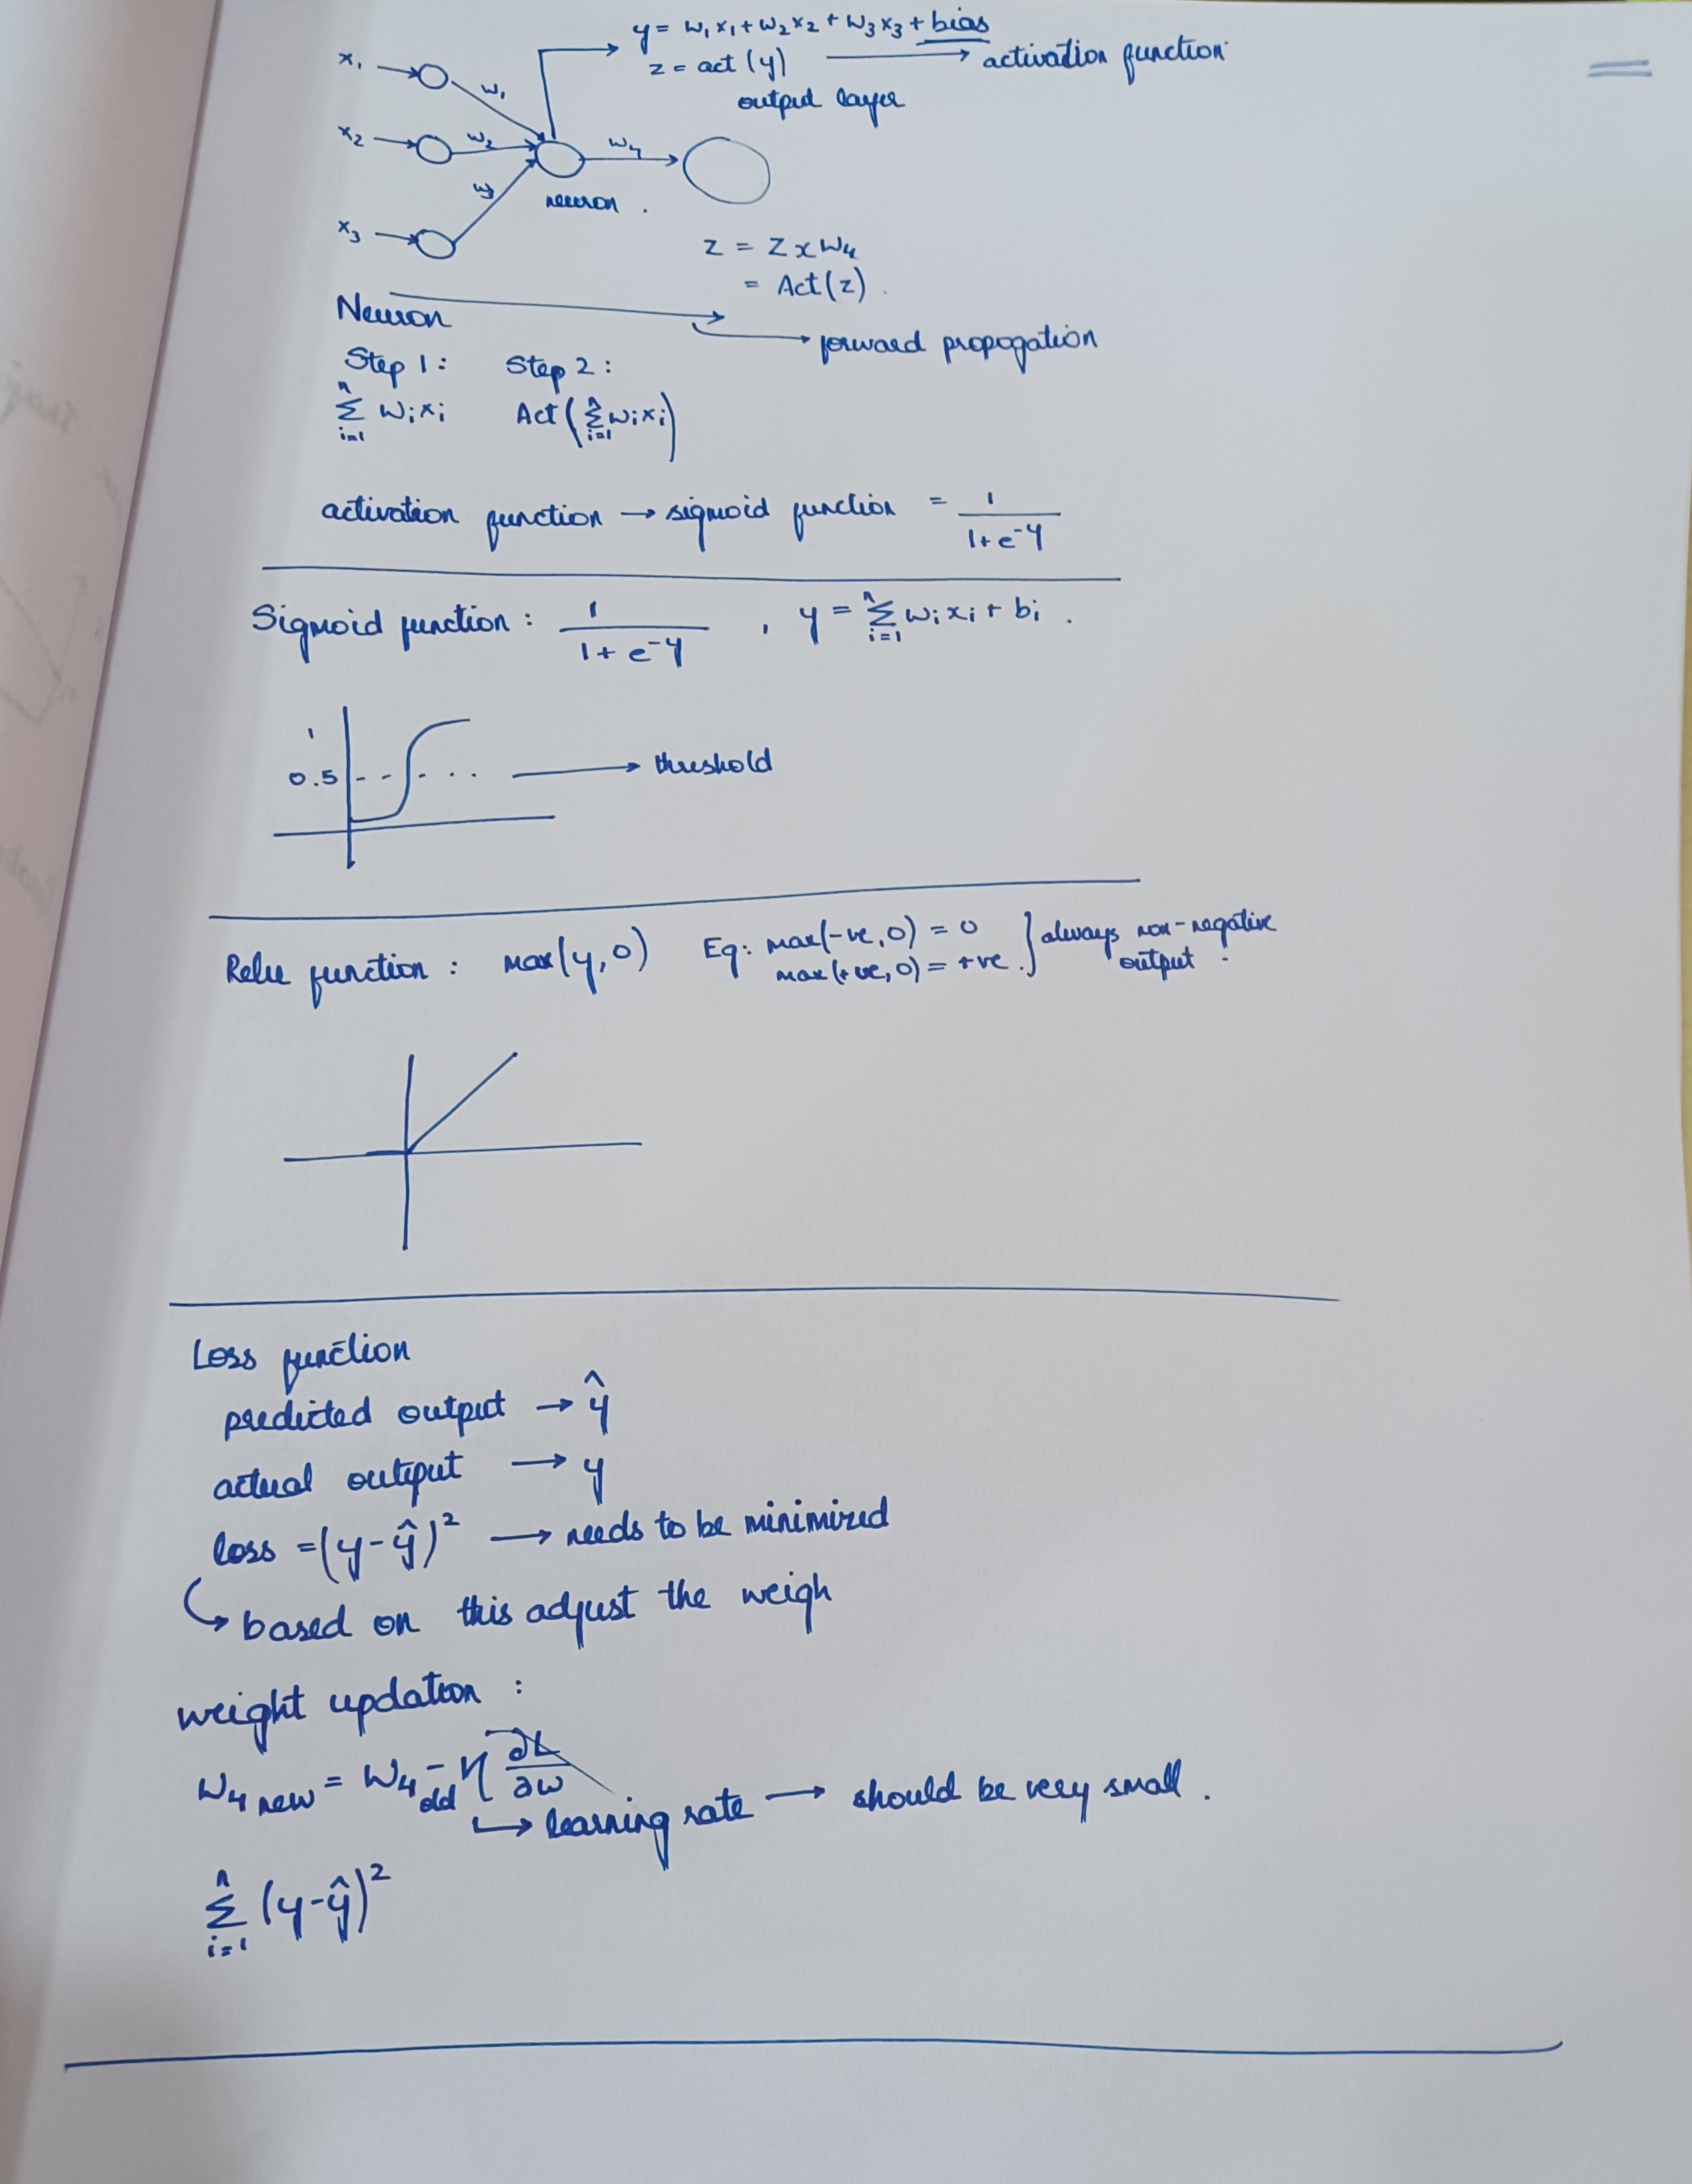 y = w₁x₁ + w₂x₂ + w₃x₃ + bias
z = act (y) → activation function
output layer
x₁
w₁
x₂
w₂
w₄
w₃
neuron .
x₃
z = z x w₄
= Act(z) .
Neuron
→ forward propogation
Step 1 : Step 2 :
n Σ i=1 wᵢxᵢ Act ( n Σ i=1 wᵢxᵢ )
activation function → sigmoid function = 1 / 1+e^-y
Sigmoid function : 1 / 1 + e^-y , y = n Σ i=1 wᵢxᵢ + bᵢ .
1
0.5 → threshold
Relu function : max(y,0) Eg: max(-ve,0) = 0 } always non-negative
max(+ve,0) = +ve . output .
Loss function
predicted output → ŷ
actual output → y
loss = (y-ŷ)² → needs to be minimized
↳ based on this adjust the weigh
weight updation :
w₄ new = w₄ old - η ∂L / ∂w
↳ learning rate → should be very small .
n Σ i=1 (y-ŷ)²